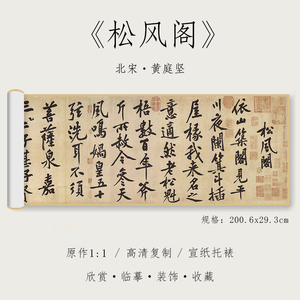 《松风阁》
北宋·黄庭坚
松風閣
依山築閣見平
川夜闌箕斗插
屋椽我來名之
意適然老松魁
梧數百年斧
斤所赦今參天
風鳴媧皇五十
弦洗耳不須
菩薩泉嘉
规格：200.6x29.3cm
原作1:1 / 高清复制 / 宣纸托裱
欣赏·临摹·装饰·收藏